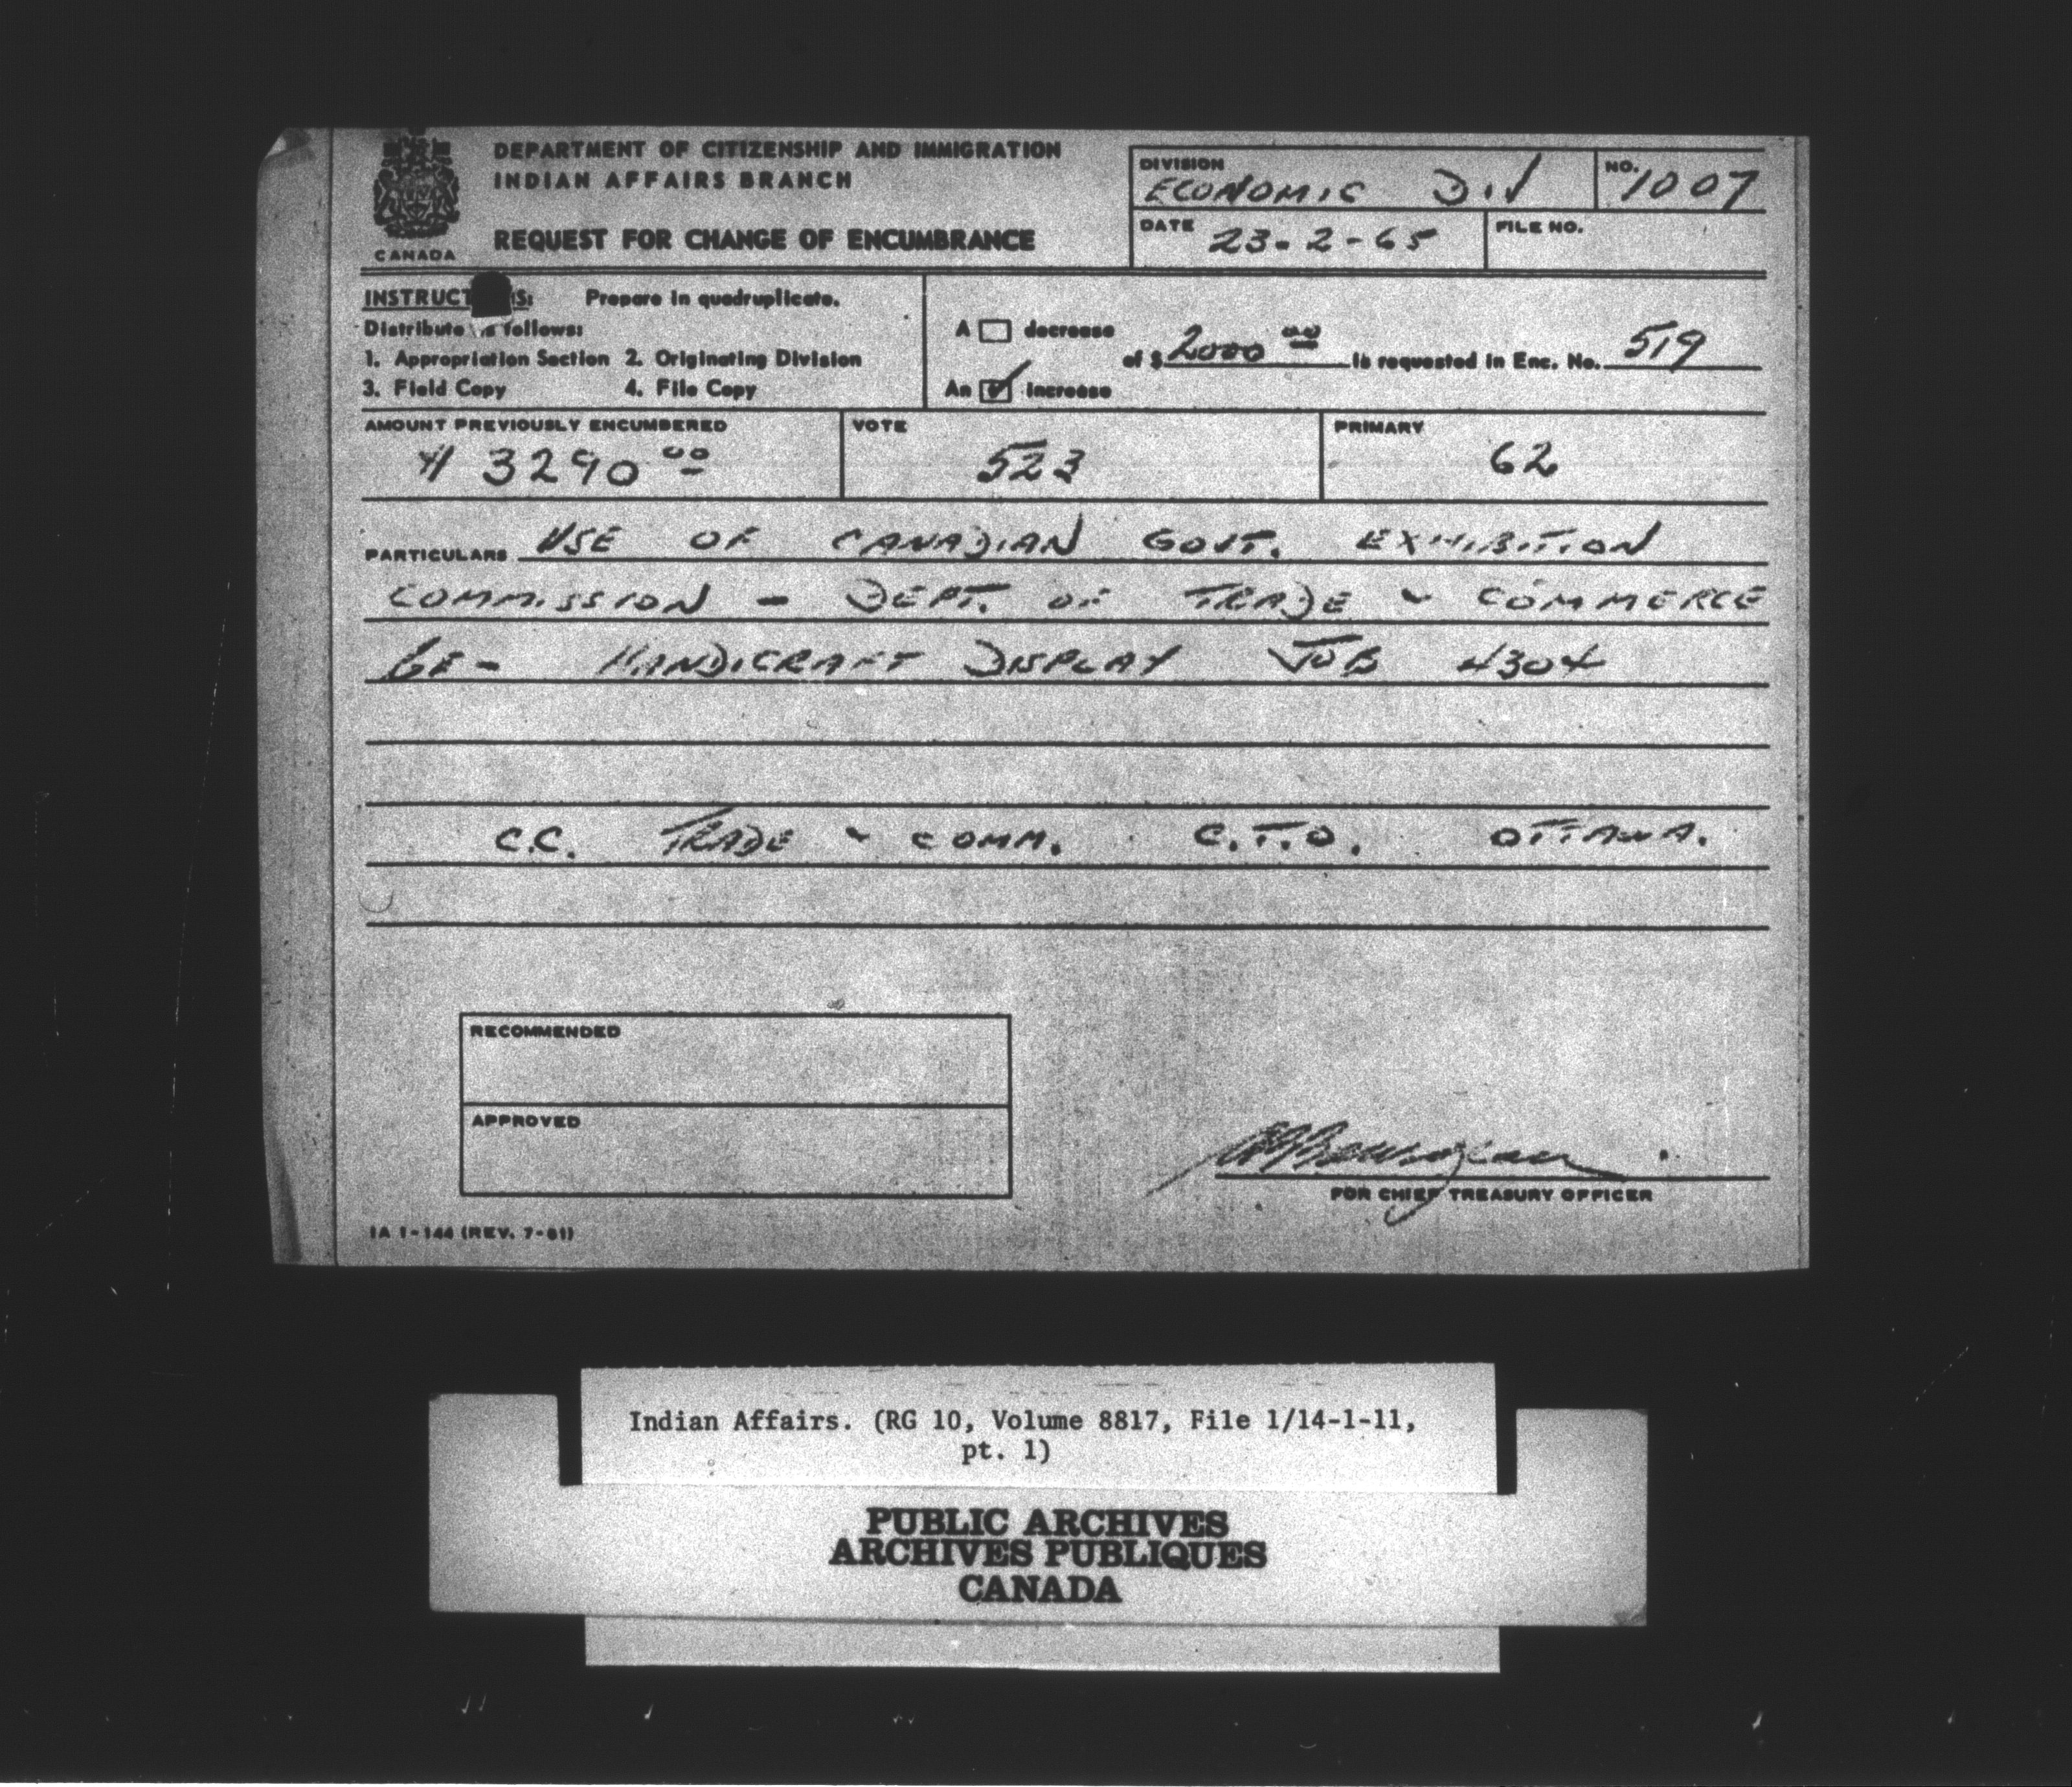 DEPARTMENT OF CITIZENSHIP AND IMMIGRATION
INDIAN AFFAIRS BRANCH
REQUEST FOR CHANGE OF ENCUMBRANCE
CANADA
DIVISION
ECONOMIC DIV
NO.
1007
DATE 23-2-65
FILE NO.
INSTRUCT S: Prepare in quadruplicate.
Distribute as follows:
1. Appropriation Section 2. Originating Division
3. Field Copy 4. File Copy
A decrease
of $ 2000 00 is requested in Enc. No. 519
An increase
AMOUNT PREVIOUSLY ENCUMBERED
$ 3290 00
VOTE
523
PRIMARY
62
PARTICULARS USE OF CANADIAN GOVT. EXHIBITION
COMMISSION - DEPT. OF TRADE & COMMERCE
HANDICRAFT DISPLAY JOB 4304
C.C. TRADE & COMM. C.T.O. OTTAWA.
RECOMMENDED
APPROVED
FOR CHIEF TREASURY OFFICER
IA 1-144 (REV. 7-61)
Indian Affairs. (RG 10, Volume 8817, File 1/14-1-11,
pt. 1)
PUBLIC ARCHIVES
ARCHIVES PUBLIQUES
CANADA